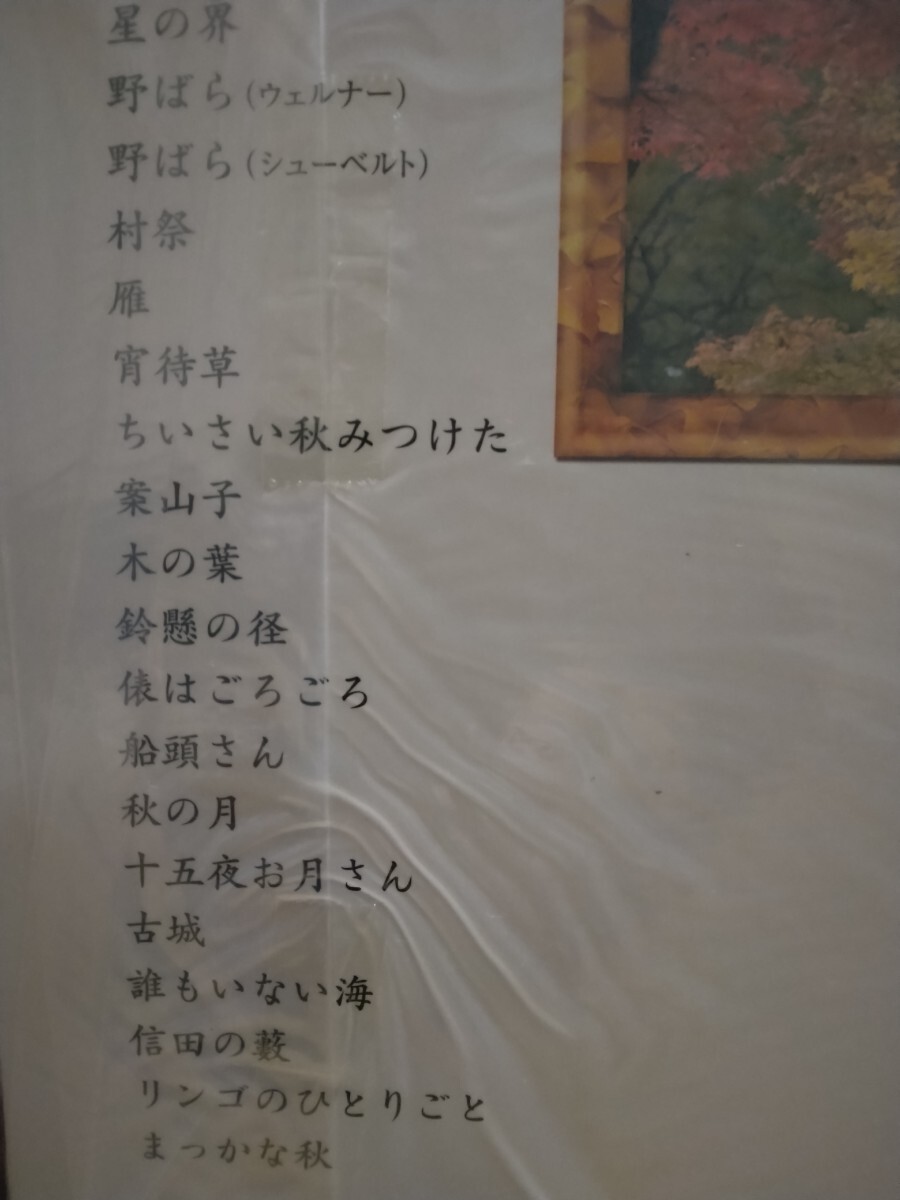 星の界
野ばら(ウェルナー)
野ばら(シューベルト)
村祭
雁
宵待草
ちいさい秋みつけた
案山子
木の葉
鈴懸の径
俵はごろごろ
船頭さん
秋の月
十五夜お月さん
古城
誰もいない海
信田の藪
リンゴのひとりごと
まっかな秋